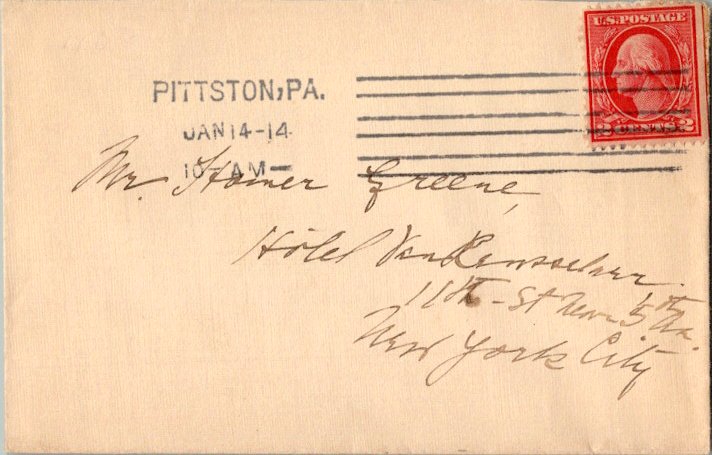 U.S.POSTAGE
2 CENTS 2
PITTSTON, PA.
JAN 14-14
10 AM-
Mr. Homer Greene,
Hotel Van Rensselaer
11th - St Near 5th Av.
New York City